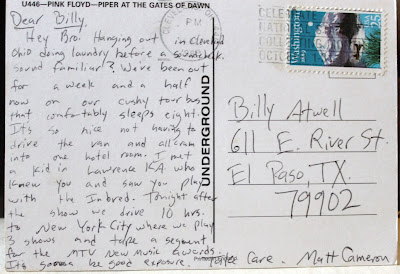 U446—PINK FLOYD—PIPER AT THE GATES OF DAWN
Dear Billy.
Hey Bro! Hanging out in Cleveland
Ohio doing laundry before a soundcheck.
sound familiar? We've been out
for a week and a half
now on our cushy tour bus
that comfortably sleeps eight.
It's so nice not having to
drive the van and all cram
into one hotel room. I met
a kid in Lawrence KA who
knew you and saw you play
with the Inbred. Tonight after
the show we drive 10 hrs.
to New York City where we play
3 shows and tape a segment
for the MTV New Music Awards.
It's gonna be good exposure. Take Care. Matt Cameron
UNDERGROUND
PM
Washington
25
USA
Billy Atwell
611 E. River St.
El Paso, TX.
79902